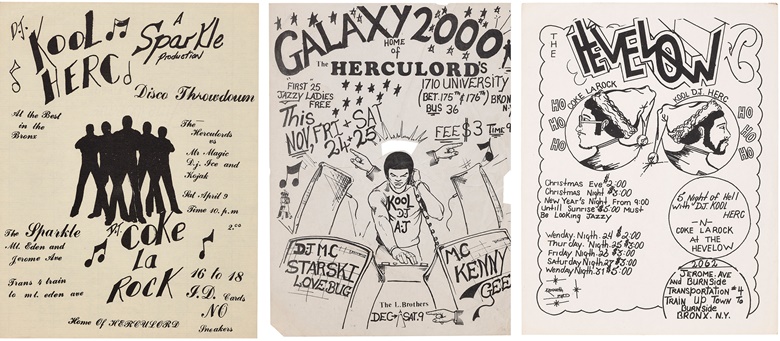 D.J. KOOL HERC
A Sparkle production
Disco Throwdown
At the Best
in the
Bronx
The
Herculords
vs
Mr Magic
D.j. Ice and
Kojak
Sat April 9
Time 10. p.m
2.00
The Sparkle
Mt. Eden and
Jerome Ave
Trans 4 train
to mt. eden ave
D.J. COKE
La
ROCK
16 to 18
I.D. Cards
NO
Sneakers
Home Of HERCULORD
GALAXY 2000
HOME
OF
The HERCULORD'S
"FIRST" 25
JAZZY LADIES
FREE
1710 UNIVERSITY
(BET. 175th & 176th) BRON
BUS 36
This
NOV, FRI + SAT
24 + 25
FEE $3 TIME 9
KOOL
DJ
AJ
DJ MC
STARSKI
LOVE BUG
MC
KENNY
GEE
The L. Brothers
DEC SAT. 9
THE
HEVELOW
COKE LA ROCK
KOOL D.J. HERC
HO
HO
HO
HO
HO
HO
Christmas Eve $2.00
Christmas Night $3.00
New Year's Night From 9:00
Untill Sunrise $5.00 Must
Be Looking Jazzy
Wenday. Nigth. 24 $2.00
Thur day. Nigth. 25 $3.00
Friday Nigth 26 $3.00
Saturday Nigth 27 $3.00
Wenday Nigth 31 $5.00
5 Night of Hell
With D.J. KOOL
HERC
-N-
COKE LA ROCK
AT THE
HEVELOW
2062
JEROME. AVE
And BURNSIDE
TRANSPORTATION #4
TRAIN UP TOWN TO
BURNSIDE
BRONX. N.Y.